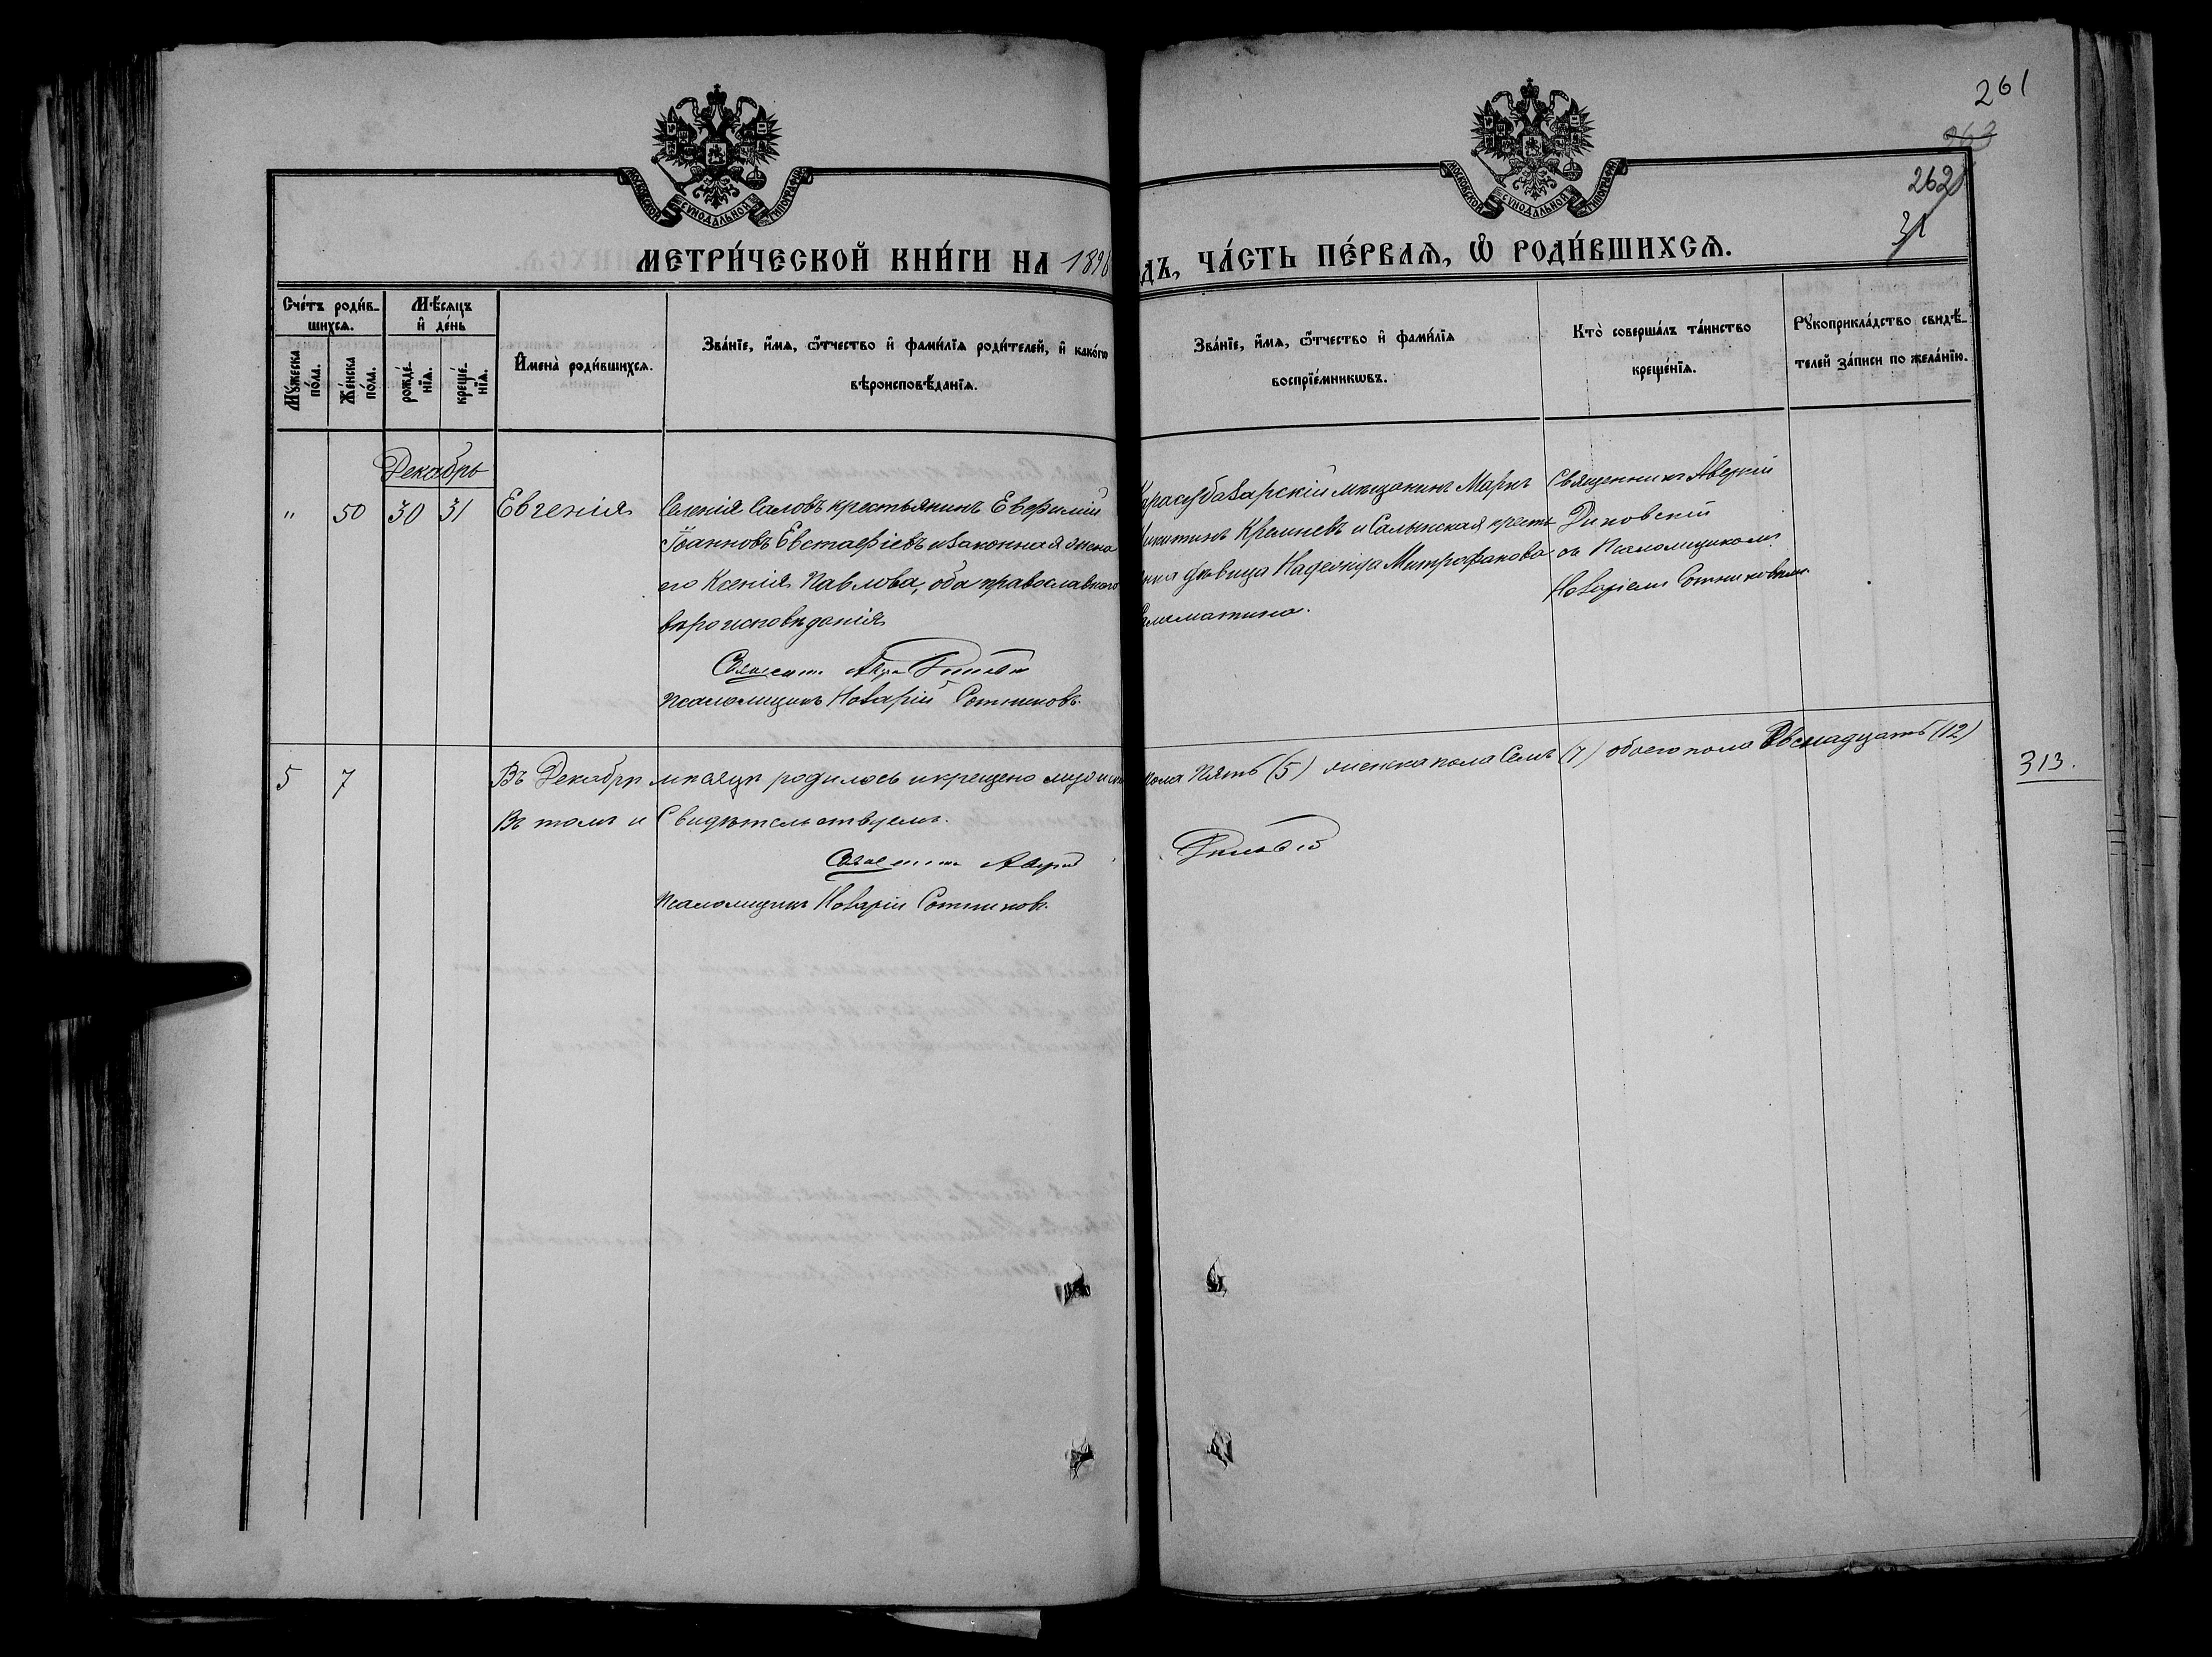 261
262
31
МОСКОВСКОЙ СѴНОДАЛЬНОЙ ТИПОГРАФІИ
МОСКОВСКОЙ СѴНОДАЛЬНОЙ ТИПОГРАФІИ
МЕТРИ́ЧЕСКОЙ КНИ́ГИ НА 1896
ДЪ, ЧА́СТЬ ПЕ́РВАѦ, Ѡ҆ РОДИ́ВШИХСѦ.
Сче́тъ роди́в-
шихсѧ.
Мꙋ́жеска по́ла.
Же́нска по́ла.
Мѣ́сѧцъ
и҆ де́нь
рожде́-
нїѧ.
креще́-
нїѧ.
И҆мена̀ роди́вшихсѧ.
Зва́нїе, и҆́мѧ, ѻ҆́тчество и҆ фами́лїѧ роди́телей, и҆ како́гѡ
вѣроисповѣ́данїѧ.
Зва́нїе, и҆́мѧ, ѻ҆́тчество и҆ фами́лїѧ
воспрїе́мникѡвъ.
Кто̀ соверша́лъ та́инство
креще́нїѧ.
Рꙋкоприкла́дство свидѣ́-
телей за́писи по жела́нїю.
Декабрь
" 50 30 31 Евгенія
Селенія Саловъ крестьянинъ Евфимій
Іоанновъ Евстафіевъ и законная жена
его Ксенія Павлова, оба православнаго
вѣроисповѣданія
Псаломщикъ Назарій Сотниковъ.
Карасубазарскій мѣщанинъ Маркъ
Никитинъ Кремневъ и Салынская крестья
дѣвица Надежда Митрофанова
Священникъ Аверкій
Диковскій
съ Псаломщикомъ
Назаріемъ Сотниковымъ
5 7 Въ Декабрѣ мѣсяцѣ родилось и крещено мужеск
пола Пять (5) женска пола Семь (7) обоего пола Двенадцать (12)
313.
Въ томъ и Свидѣтельствуемъ.
Псаломщикъ Назарій Сотниковъ.